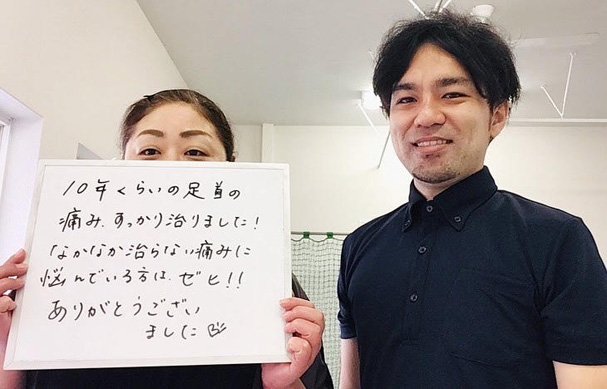 10年くらいの足首の
痛み、すっかり治りました！
なかなか治らない痛みに
悩んでいる方は、ゼヒ!!
ありがとうござい
ました